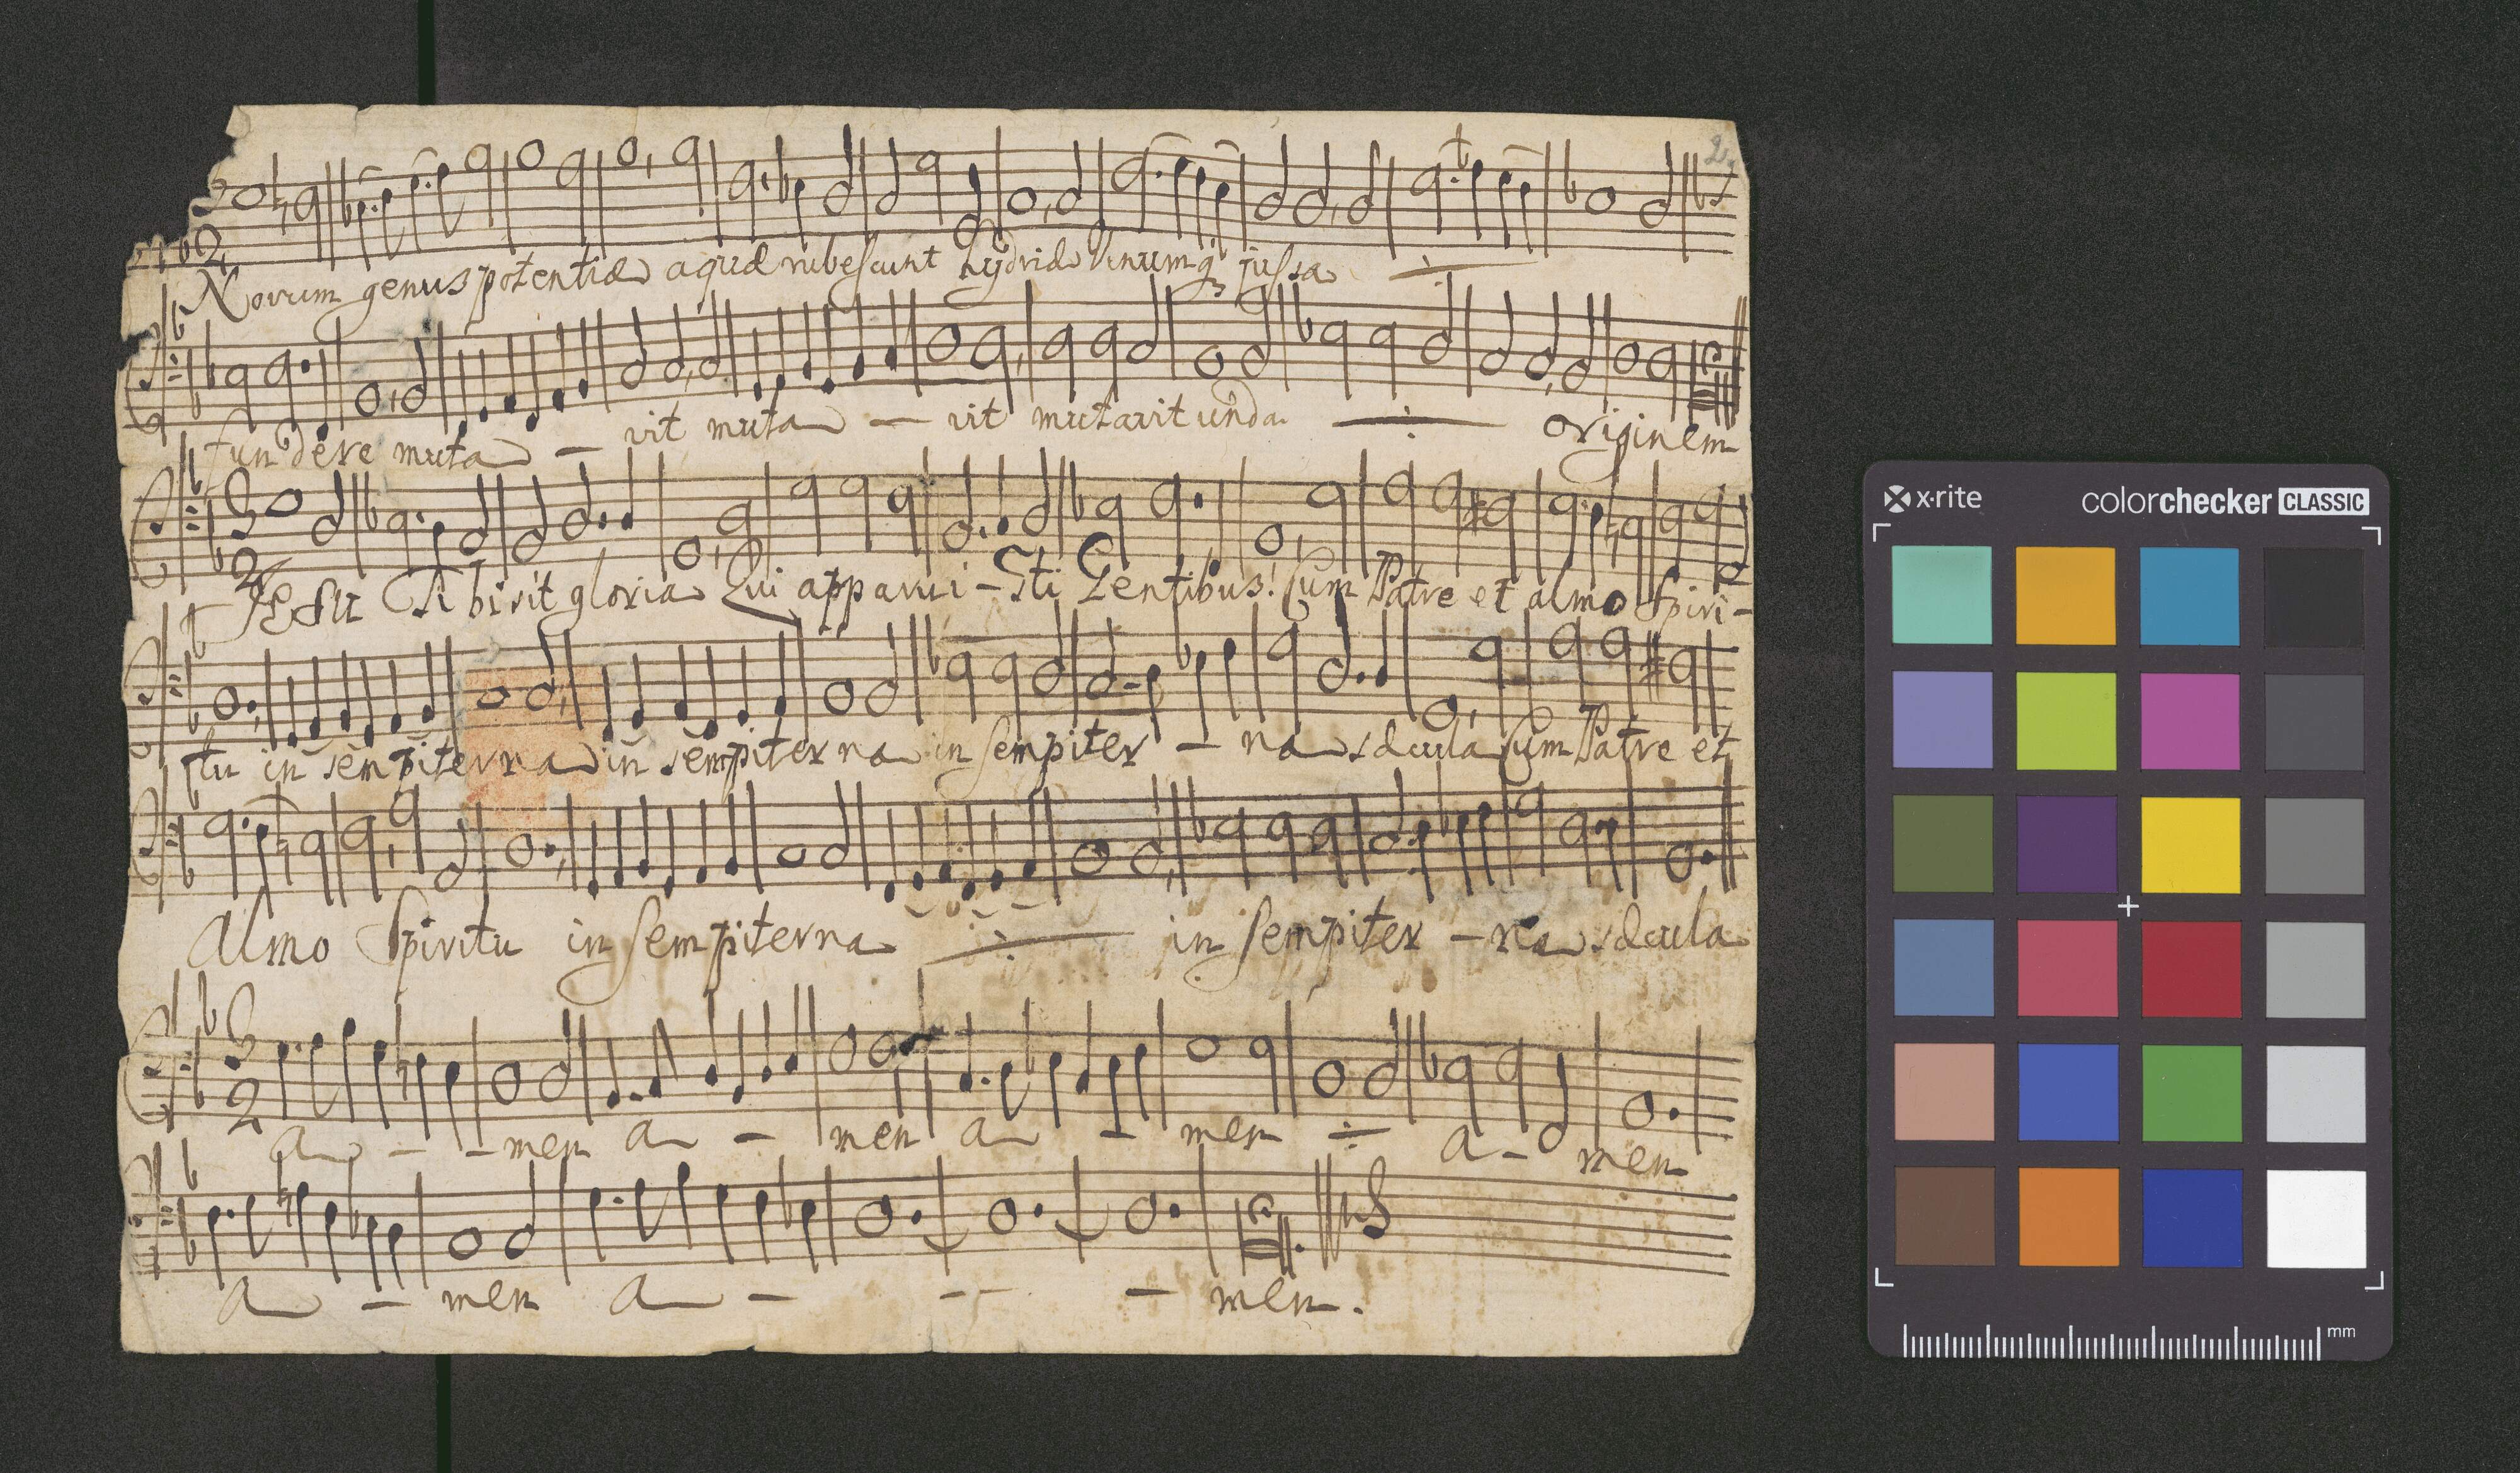 2.
Novum genus potentiæ aquæ rubescunt hydriæ Vinumq jussa
fundere muta - vit muta - vit mutavit unda originem
JEsu Tibi sit gloria Qui apparui - sti Gentibus: Cum Patre et almo Spiri-
tu in sempiterna in sempiterna in sempiter - na sæcula Cum Patre et
Almo Spiritu in sempiterna in sempiter - na sæcula
a - - men a - men a - men a - men
a - men a - - - - men.
x-rite colorchecker CLASSIC
mm